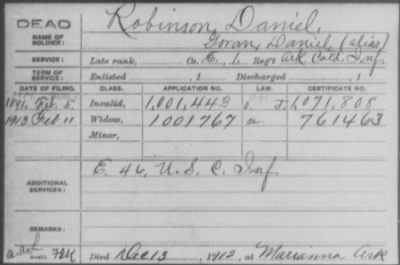 DEAD
NAME OF SOLDIER:
Robinson, Daniel,
Goran, Daniel (alias)
SERVICE:
Late rank, Co. E, 1, Reg't Ark Cold Inf.
TERM OF SERVICE:
Enlisted , 1 Discharged , 1
DATE OF FILING. CLASS. APPLICATION NO. LAW. CERTIFICATE NO.
1891, Feb. 5. Invalid, 1,001,443 J. 1,071,808
1913 Feb 11 Widow, 1001767 a. 761463
Minor,
ADDITIONAL SERVICES:
E. 46, U. S. C. Inf.
REMARKS:
Died Dec 13, 1912, at Marianna Ark